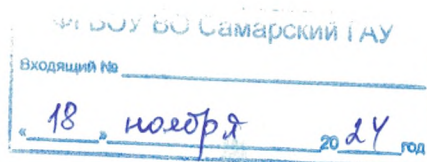 ФГБОУ ВО Самарский ГАУ
Входящий №
« 18 » ноября 20 24 год